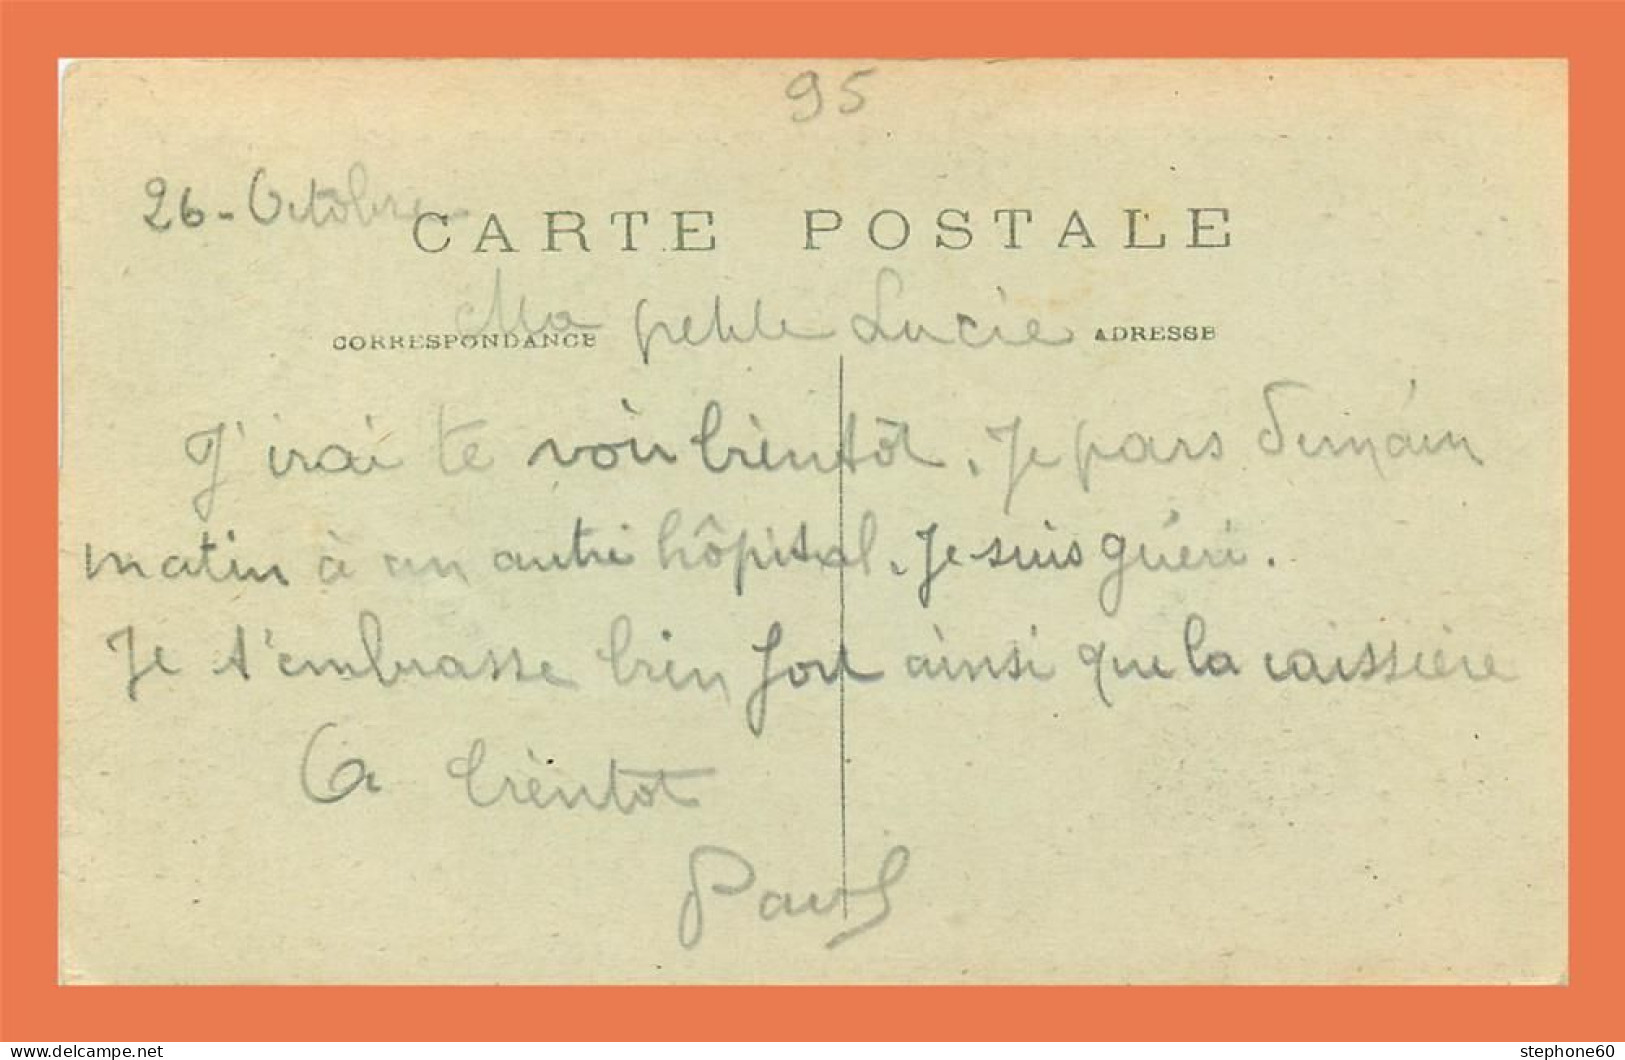 95
26 - Octobre
CARTE POSTALE
Ma petite Lucie
CORRESPONDANCE ADRESSE
J'irai te voir bientôt. Je pars demain
matin à un autre hôpital. Je suis guéri.
Je t'embrasse bien fort ainsi que la caissière
A bientot
Paul
delcampe.net
stephone60